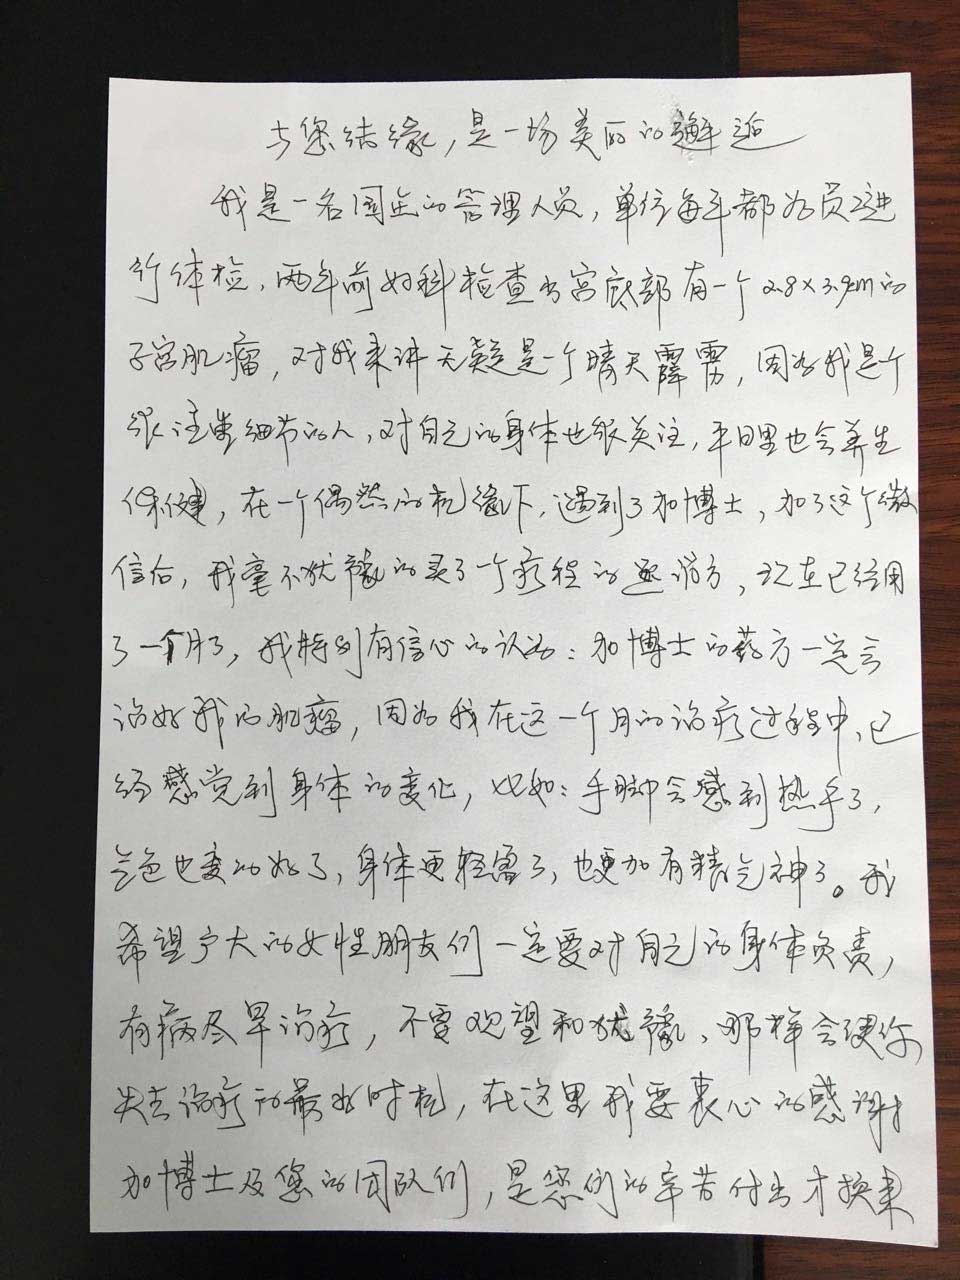 与您结缘,是一场美丽的邂逅
我是一名国企的管理人员,单位每年都为员工进
行体检,两年前妇科检查出宫底部有一个2.8×3.9cm的
子宫肌瘤,对我来讲无疑是一个晴天霹雳,因为我是个
很注重细节的人,对自己的身体也很关注,平日里也会养生
保健,在一个偶然的机缘下,遇到了加博士,加了这个微
信后,我毫不犹豫的买了一个疗程的逐瘀方,现在已经用
了一个月了,我特别有信心的认为:加博士的药方一定会
治好我的肌瘤,因为我在这一个月的治疗过程中,已
经感觉到身体的变化,比如:手脚会感到热乎了,
气色也变的好了,身体更轻盈了,也更加有精气神了。我
希望广大的女性朋友们一定要对自己的身体负责,
有病尽早治疗,不要观望和犹豫、那样会使你
失去治疗的最好时机,在这里我要衷心的感谢
加博士及您的团队们,是您们的辛苦付出才换来